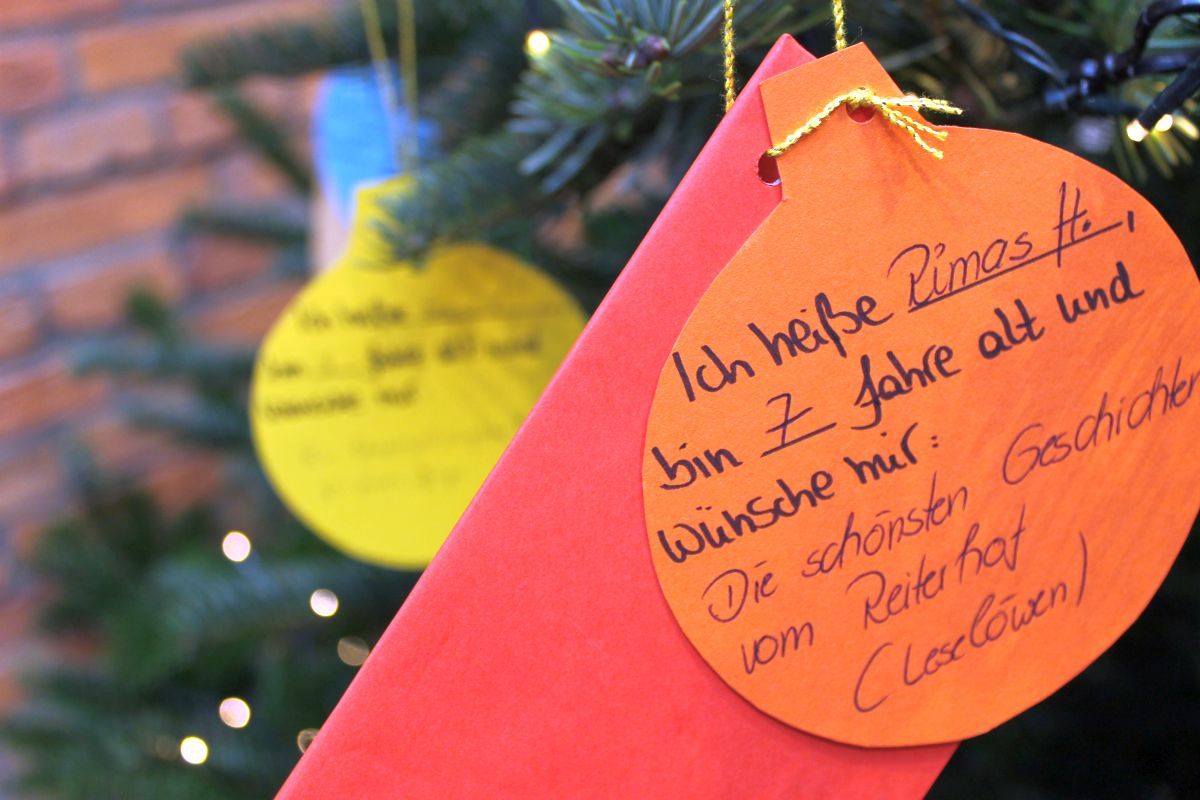 Ich heiße Rimas H.,
bin 7 Jahre alt und
wünsche mir:
Die schönsten Geschichten
vom Reiterhof
(Leselöwen)
Ich heiße
bin Jahre alt und
wünsche mir